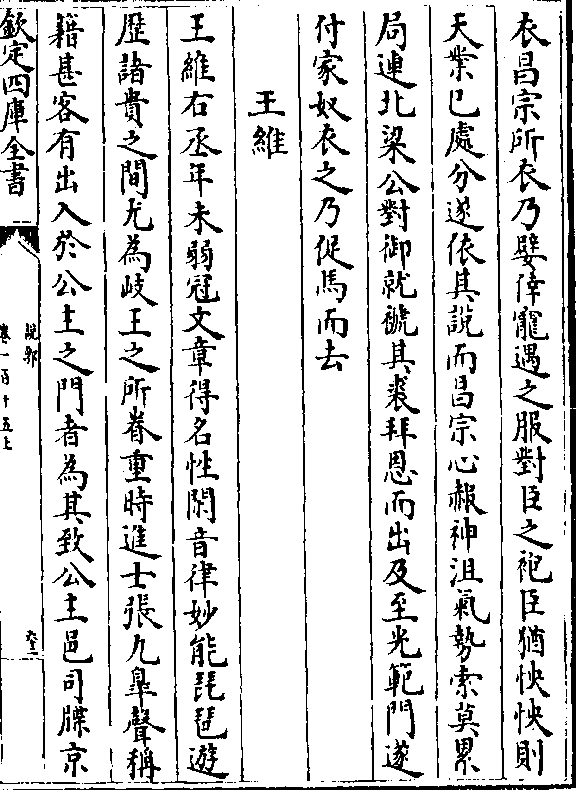 衣昌宗所衣乃嬖倖寵遇之服對臣之袍臣猶怏怏則
天業已處分遂依其說而昌宗心赧神沮氣勢索莫累
局連北梁公對御就褫其裘拜恩而出及至光範門遂
付家奴衣之乃促馬而去
王維
王維右丞年未弱冠文章得名性閑音律妙能琵琶遊
歴諸貴之間尤為岐王之所眷重時進士張九臯聲稱
籍甚客有出入於公主之門者為其致公主邑司牒京
欽定四庫全書
説郛
卷一百十五上